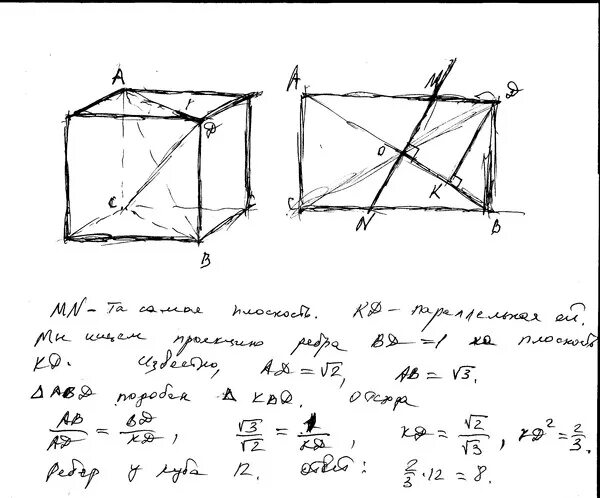 A
1
D
C
B
A
M
D
O
K
C
N
B
MN – Та самая плоскость. KD – параллельная ей.
Мы ищем проекцию ребра BD = 1 на плоскость
KD. Известно, AD = √2, AB = √3.
△ABD подобен △KBD. Отсюда
AB/AD = BD/KD, √3/√2 = 1/KD, KD = √2/√3, KD² = 2/3.
Ребер у куба 12. Ответ: 2/3 · 12 = 8.